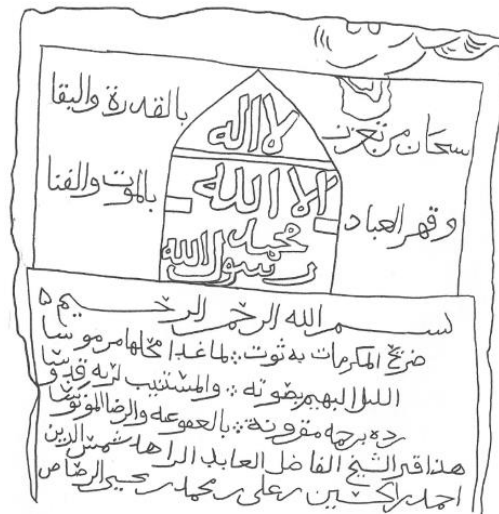 سبحان من تعزز بالقدرة والبقا
وقهر العباد بالموت والفنا
لا اله
الا الله
محمد
رسول الله
بسم الله الرحمن الرحيم
ضريح المكرمات به ثوت لما غدا محلها مرموسا
الليل البهيم بصونه والمستتيب لربه
برحمه مقرونة بالعفو عنه والرضا
هذا قبر الشيخ الفاضل العابد الزاهد شمس الدين
احمد بن الحسين بن علي بن محمد بن يحيى الرصاص